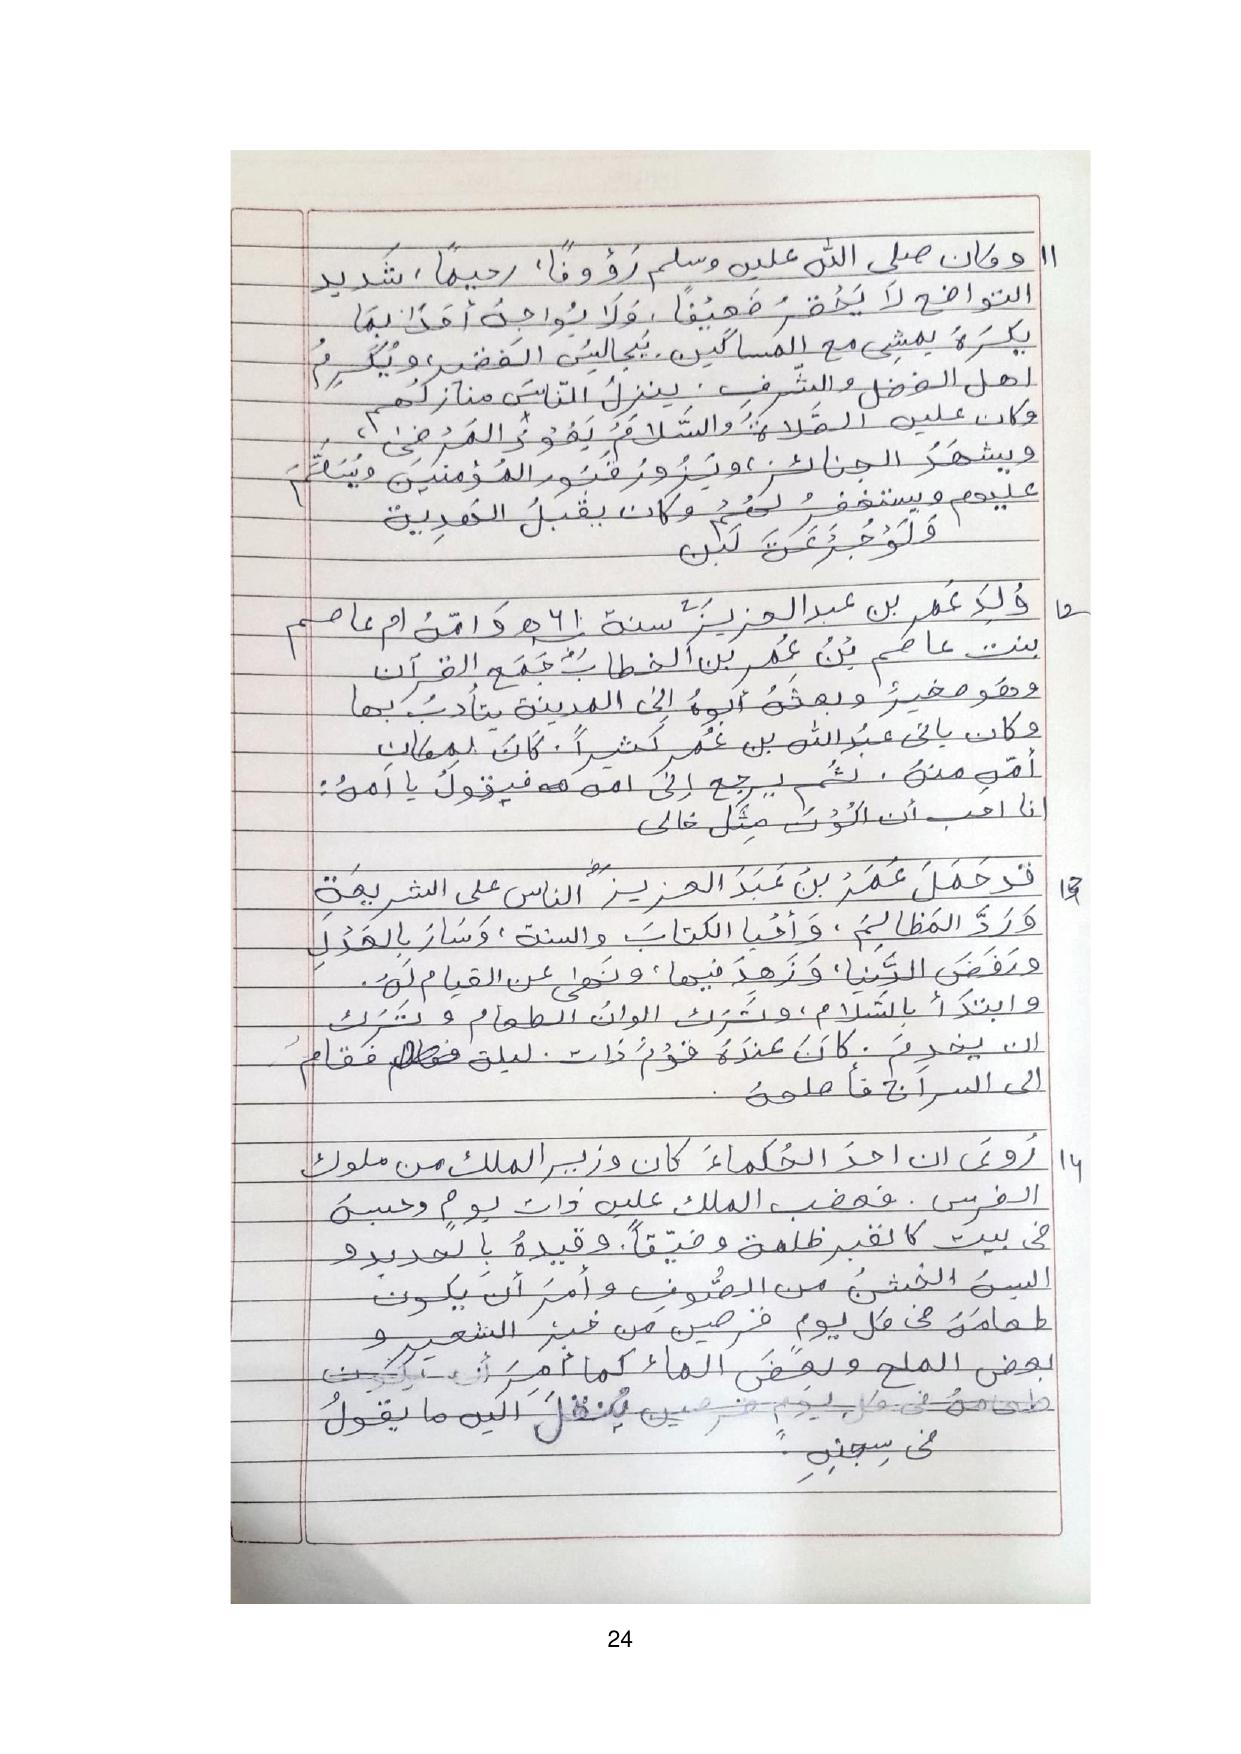 ۱۱ وکان صلی الله علیه وسلم رَؤُوفًا، رحیمًا، شَدید
التواضع لَا یَحْقِرُ ضَعِیْفًا، وَلَا یُواجِهُ أَحَدًا بِمَا
یکرَهُ یمشِی مع المساکین. یُجالِسُ الفقیر، ویُکْرِمُ
اهل الفضل والشّرفِ. ینزلُ النّاسَ منازلَهُم
وکان علیه الصَّلاةُ والسَّلامُ یَعُوْدُ المَرْضیٰ،
ویشهَدُ الجنائز، ویَزُورُ قُبُور المُؤمنین ویُسَلِّمُ
علیهم ویستغفرُ لَهُمْ وکان یقبلُ الهَدِیة
وَلَوْ جُرْعَةَ لَبن
۱۲ وُلِدَ عُمر بن عبدالعزیزؒ سنة ۶۱ه وَامّهُ ام عاصم
بنت عاصم بْنُ عُمر بن الخطابؓ جَمَع القرآن
وهو صغیرٌ وبعثهُ أبوهُ إلیٰ المدینة یتأدبُ بها
وکان یاتی عبدُالله بن عُمر کثیراً. کَانَ لِمکانِ
أُمّهِ منهُ. ثم یرجع إلیٰ امه فیقولُ یا اَمهُ:
انا احب أن اکُوْنَ مِثْلَ خالی
۱۳ قد حَمَلَ عُمَرُ بنُ عَبدَ العزیزؒ الناس علی الشریعَةِ
وَرَدَّ المَظالِمَ، وَأحْیا الکتابَ والسنة، وَسَارَ بِالعَدْلِ
ورَفَضَ الدُّنیا، وَزَهِدَ فیها، ونَهی عن القیام لَهُ.
وابتدَأ بالسَّلام، وتَرَک الوانُ الطعام وتَرَکَ
ان یخدِمَ. کَانَ عندَهُ قَوْمٌ ذَات لیلة فَقَامَ
الی السراجِ فأصلحهُ.
۱۴ رُوِیَ ان احدَ الحُکماءَ کان وزیر الملک من ملوک
الفرس. فغضب الملک علیه ذات یومٍ وحبسهُ
فی بیت کالقبر ظلمة وضیّقاً. وقیدهُ بالحدید و
البسهُ الخشنُ من الصُّوفِ وأمَرَ أن یکون
طعامَهُ فی کل یومٍ قرصین من خبز الشعیر و
بعض الملح وبعضَ الماء کما أمِرَ أن یکون
طعامهُ فی کل یوم قرصین یُنقَلَ الیه ما یقولُ
فی سِجنِهِ.
24